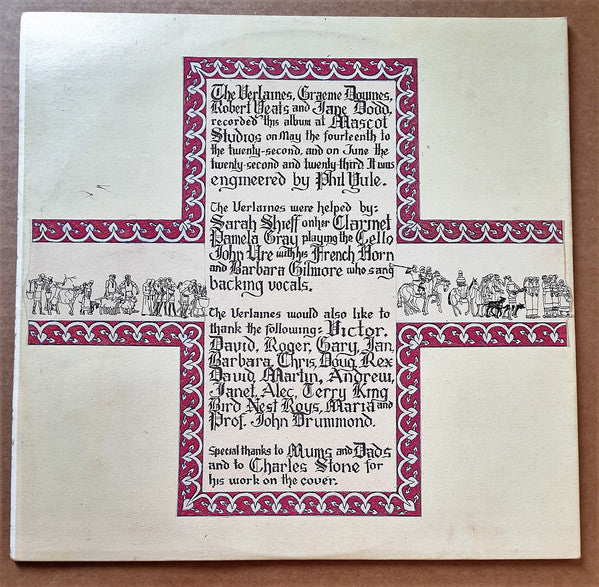 The Verlaines, Graeme Downes,
Robert Yeats and Jane Dodd
recorded this album at Mascot
Studios on May the fourteenth to
the twenty-second, and on June the
twenty-second and twenty-third It was
engineered by Phil Yule.
The Verlaines were helped by:
Sarah Shieff on her Clarinet
Pamela Gray playing the Cello
John Ure with his French Horn
and Barbara Gilmore who sang
backing vocals.
The Verlaines would also like to
thank the following: Victor,
David, Roger, Gary, Jan,
Barbara, Chris, Doug, Rex
David, Martin, Andrew,
Janet, Alec, Terry King
Bird Nest Roys, Maria and
Prof. John Drummond.
Special thanks to Mums and Dads
and to Charles Stone for
his work on the cover.